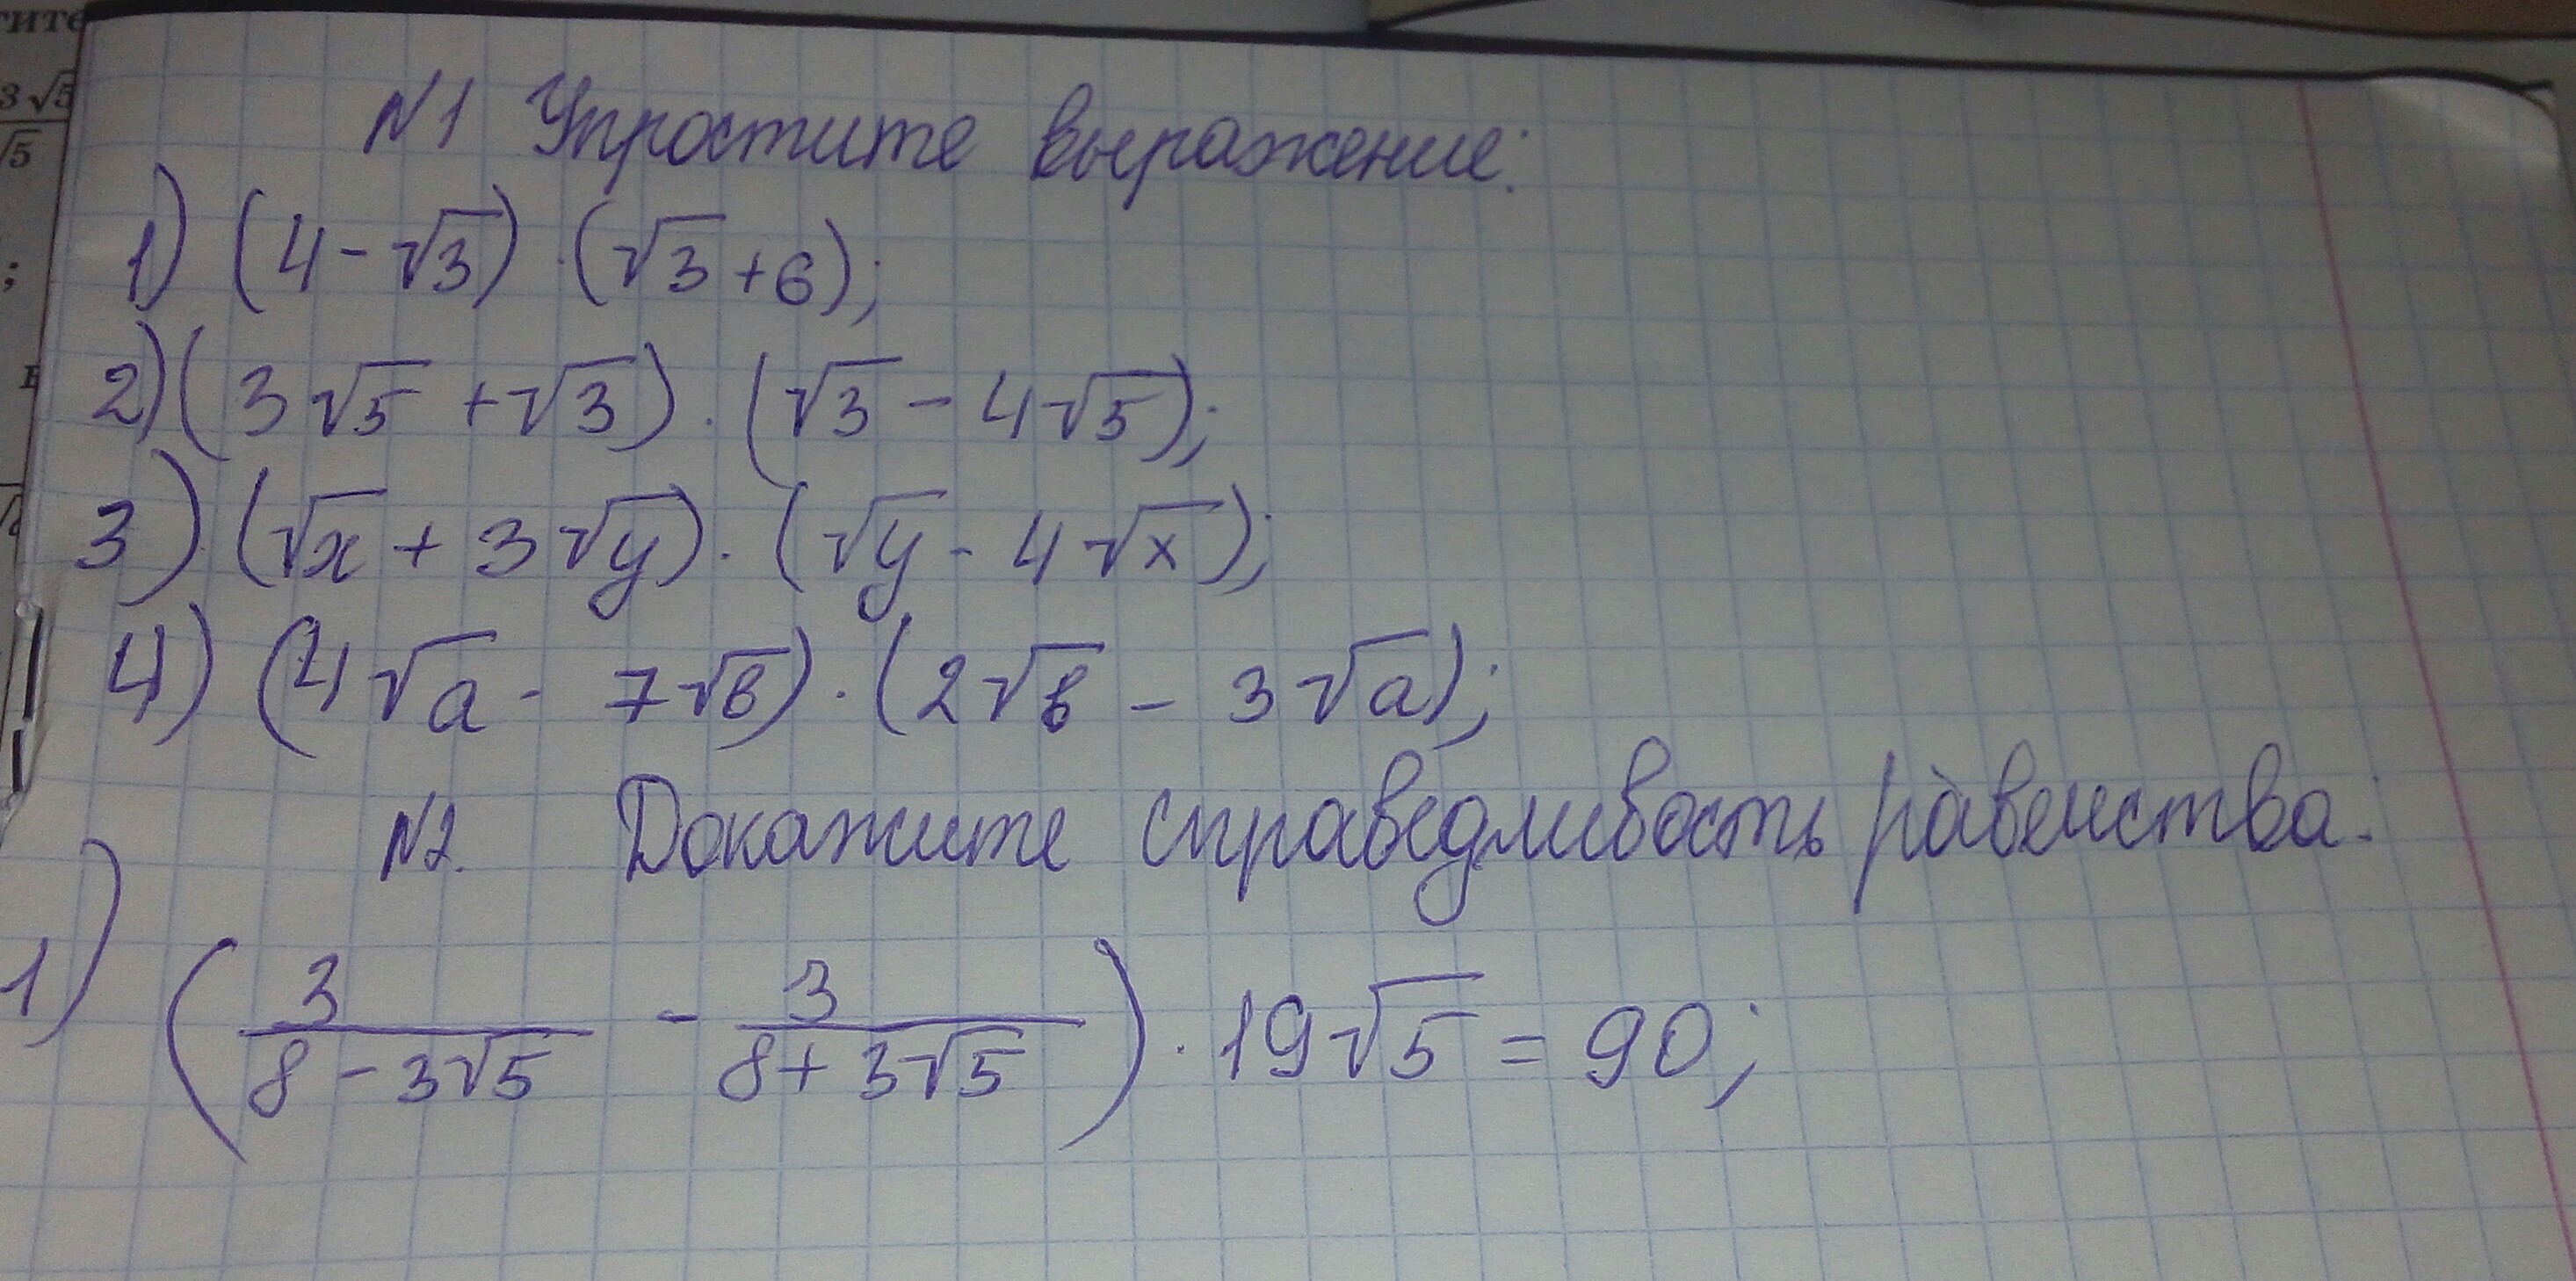 тите
3√5
√5
;
N1 Упростите выражение:
1) (4-√3) · (√3+6);
2) (3√5 +√3) · (√3 - 4√5);
3) (√x + 3√y) · (√y - 4√x);
4) (4√a - 7√b) · (2√b - 3√a);
N2. Докажите справедливость равенства:
1) (3/(8-3√5) - 3/(8+3√5)) · 19√5 = 90;